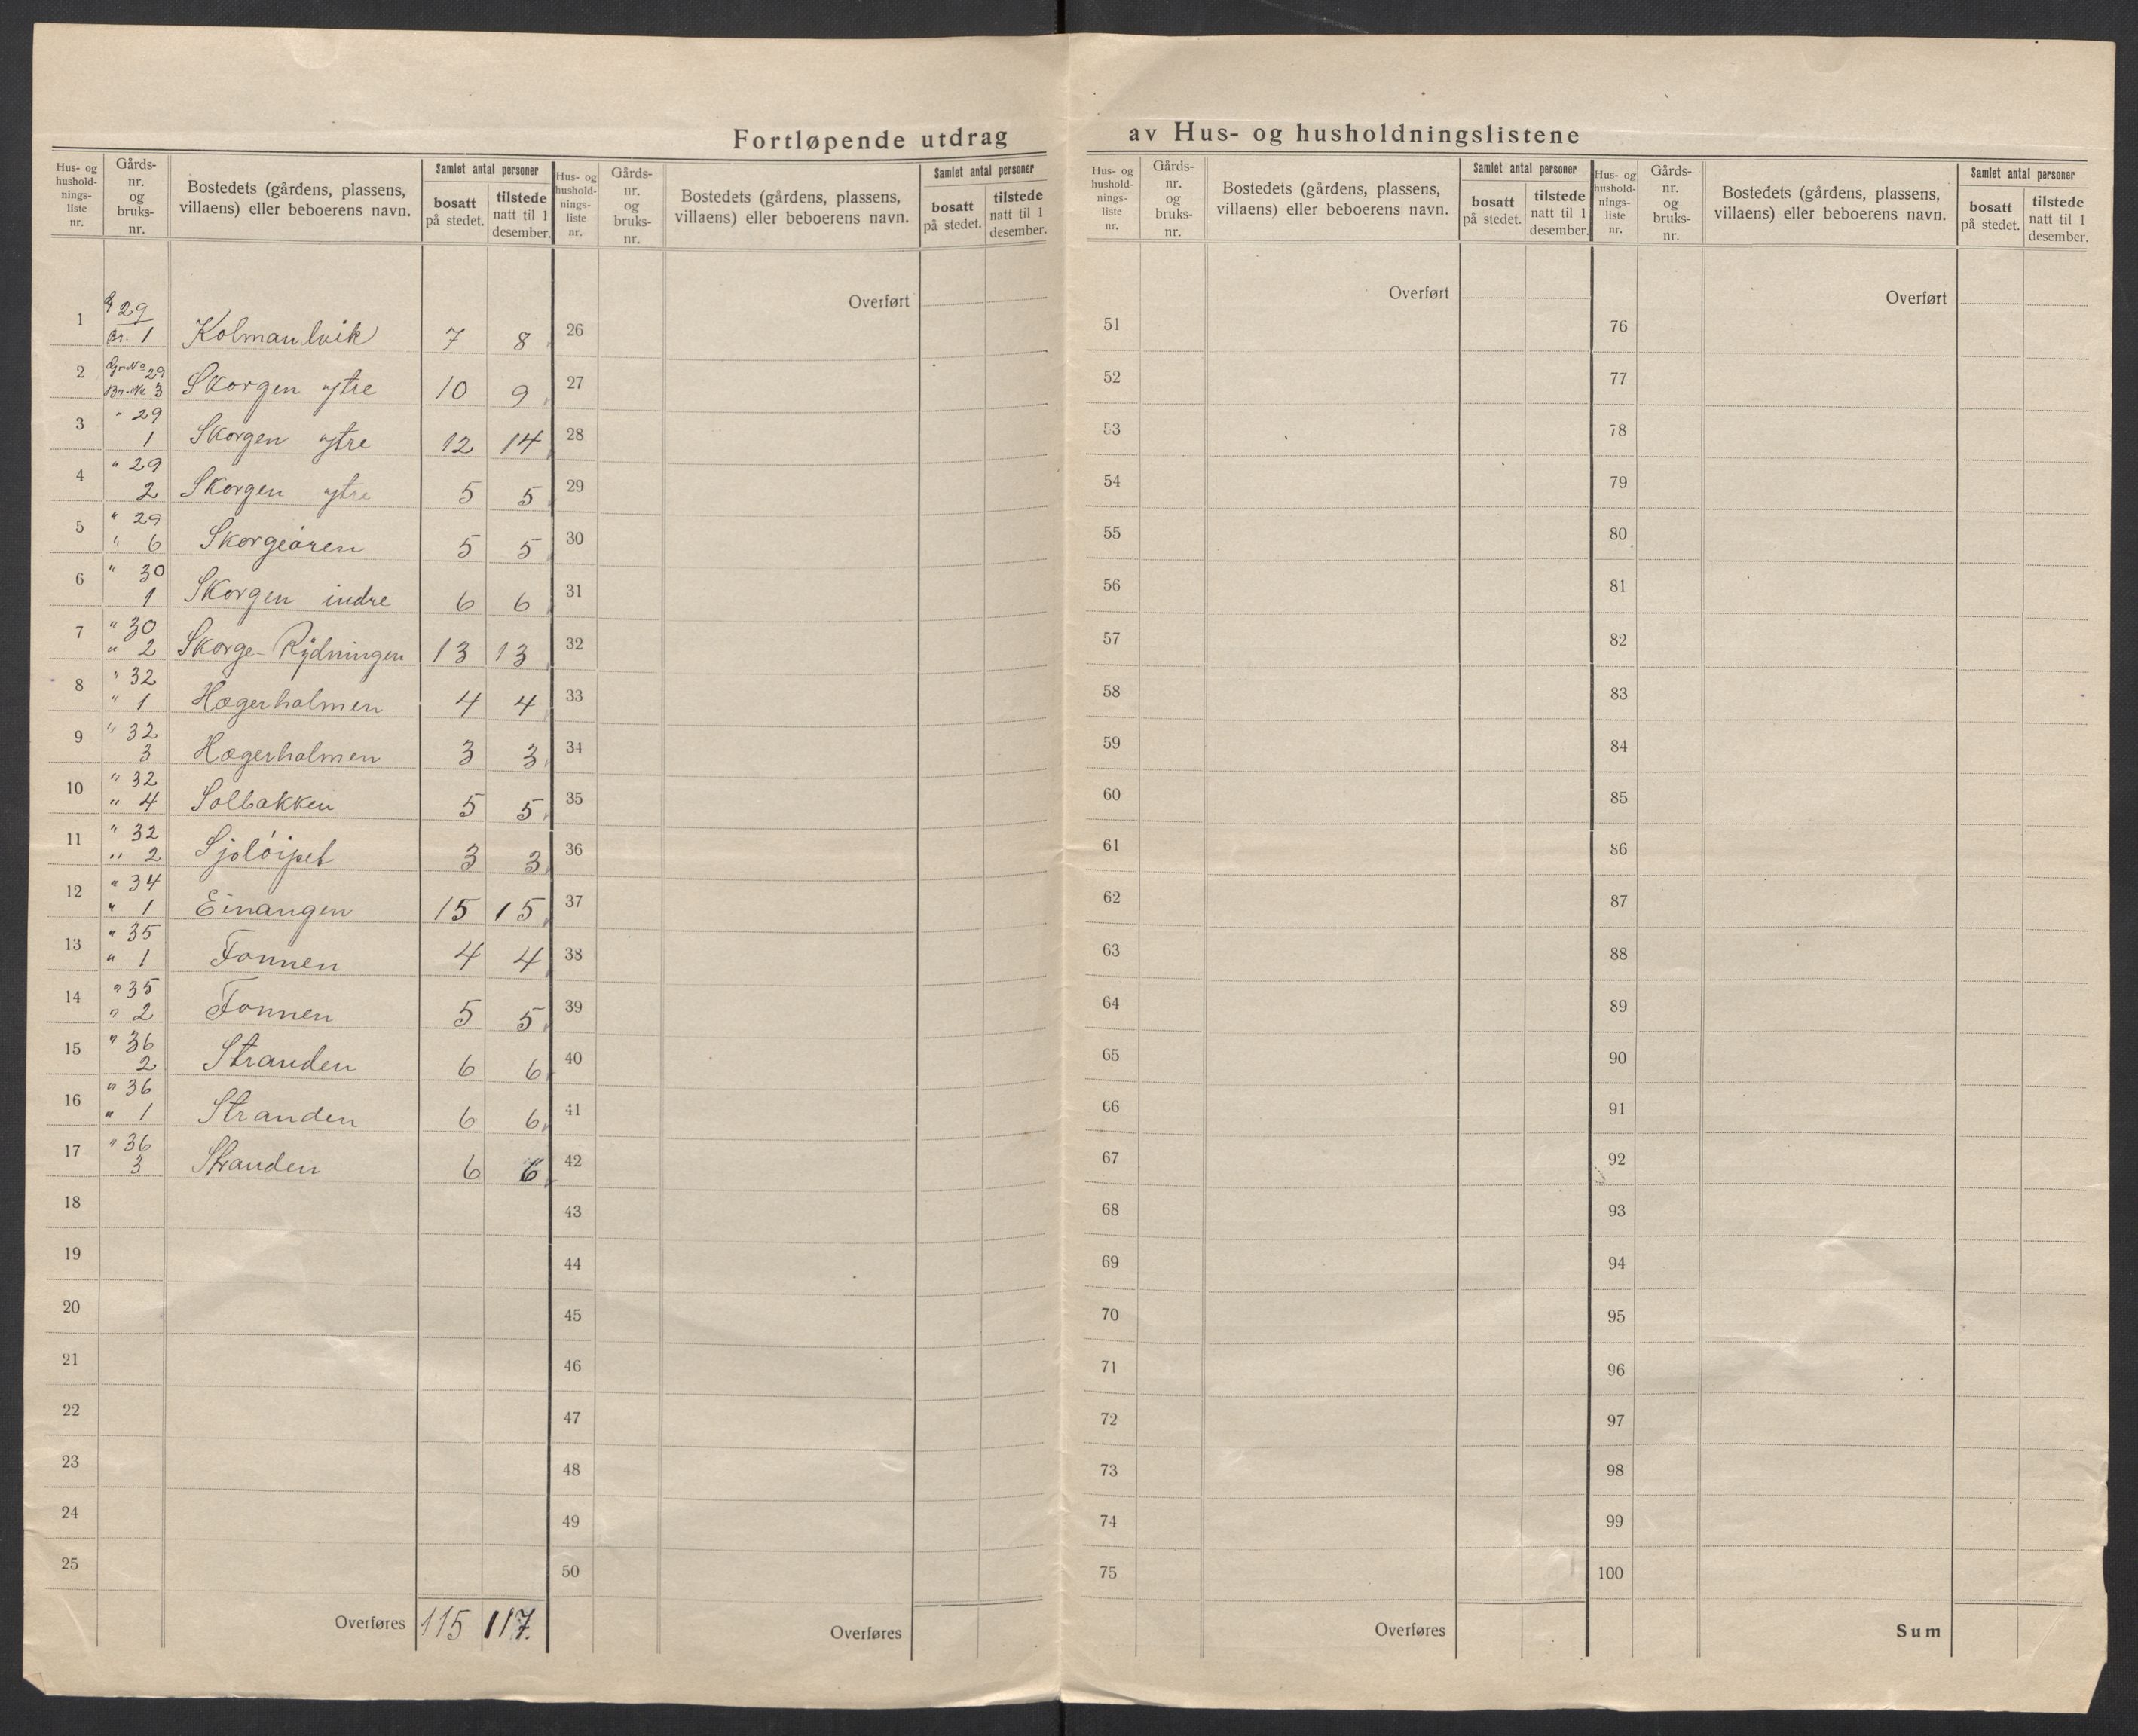 Fortløpende utdrag av Hus- og husholdningslistene
Hus- og husholdnings-liste nr. | Gårds-nr. og bruks-nr. | Bostedets (gårdens, plassens, villaens) eller beboerens navn. | Samlet antal personer | bosatt på stedet. | tilstede natt til 1 desember.
1 | G 29 Br. 1 | Kolmanlvik | 7 | 8
2 | Gr.No 29 Br.No 3 | Skorgen ytre | 10 | 9
3 | " 29 1 | Skorgen ytre | 12 | 14
4 | " 29 2 | Skorgen ytre | 5 | 5
5 | " 29 " 6 | Skorgeøren | 5 | 5
6 | " 30 1 | Skorgen indre | 6 | 6
7 | " 30 " 2 | Skorge-Rydningen | 13 | 13
8 | " 32 " 1 | Hægerholmen | 4 | 4
9 | " 32 3 | Hægerholmen | 3 | 3
10 | " 32 " 4 | Solbakken | 5 | 5
11 | " 32 " 2 | Sjoløipet | 3 | 3
12 | " 34 " 1 | Einangen | 15 | 15
13 | " 35 " 1 | Fonnen | 4 | 4
14 | " 35 " 2 | Fonnen | 5 | 5
15 | " 36 2 | Stranden | 6 | 6
16 | " 36 " 1 | Stranden | 6 | 6
17 | " 36 3 | Stranden | 6 | 6
18
19
20
21
22
23
24
25
Overføres 115 117.
Hus- og husholdnings-liste nr. | Gårds-nr. og bruks-nr. | Bostedets (gårdens, plassens, villaens) eller beboerens navn. | Samlet antal personer | bosatt på stedet. | tilstede natt til 1 desember.
Overført
26
27
28
29
30
31
32
33
34
35
36
37
38
39
40
41
42
43
44
45
46
47
48
49
50
Overføres
Hus- og husholdnings-liste nr. | Gårds-nr. og bruks-nr. | Bostedets (gårdens, plassens, villaens) eller beboerens navn. | Samlet antal personer | bosatt på stedet. | tilstede natt til 1 desember.
Overført
51
52
53
54
55
56
57
58
59
60
61
62
63
64
65
66
67
68
69
70
71
72
73
74
75
Overføres
Hus- og husholdnings-liste nr. | Gårds-nr. og bruks-nr. | Bostedets (gårdens, plassens, villaens) eller beboerens navn. | Samlet antal personer | bosatt på stedet. | tilstede natt til 1 desember.
Overført
76
77
78
79
80
81
82
83
84
85
86
87
88
89
90
91
92
93
94
95
96
97
98
99
100
Sum